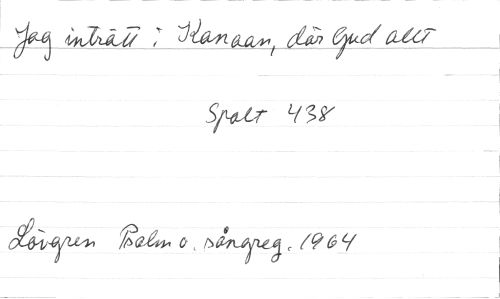 Jag inträtt i Kanaan, där Gud allt
Spalt 438
Lövgren Psalm o. sångreg. 1964